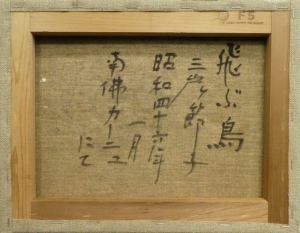 F5
飛ぶ鳥
三岸節子
昭和四十六年
一月
南佛カーニュ
にて